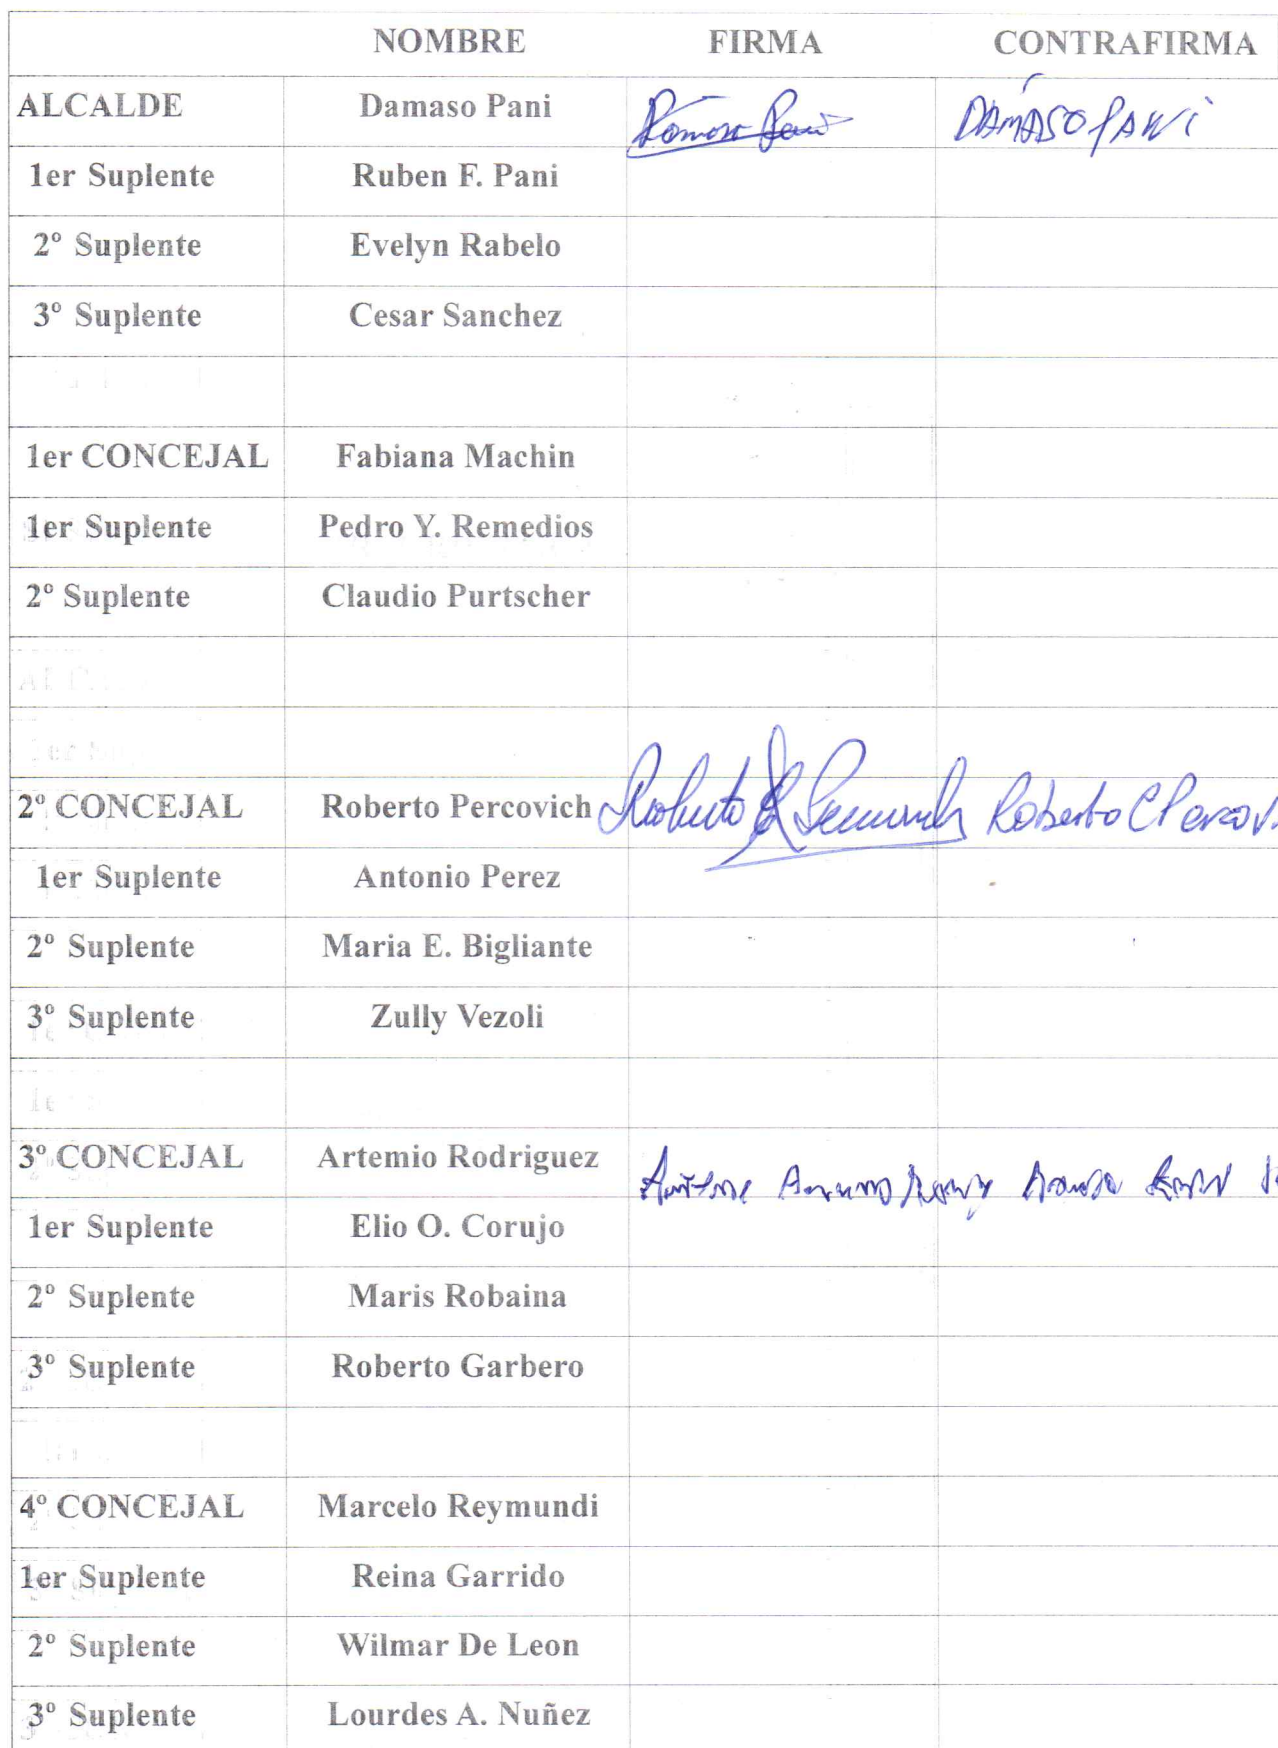 NOMBRE FIRMA CONTRAFIRMA
ALCALDE Damaso Pani Damaso Pani DAMASO PANI
1er Suplente Ruben F. Pani
2º Suplente Evelyn Rabelo
3º Suplente Cesar Sanchez
1er CONCEJAL Fabiana Machin
1er Suplente Pedro Y. Remedios
2º Suplente Claudio Purtscher
2º CONCEJAL Roberto Percovich Roberto Roberto C Percov
1er Suplente Antonio Perez
2º Suplente Maria E. Bigliante
3º Suplente Zully Vezoli
3º CONCEJAL Artemio Rodriguez
1er Suplente Elio O. Corujo
2º Suplente Maris Robaina
3º Suplente Roberto Garbero
4º CONCEJAL Marcelo Reymundi
1er Suplente Reina Garrido
2º Suplente Wilmar De Leon
3º Suplente Lourdes A. Nuñez